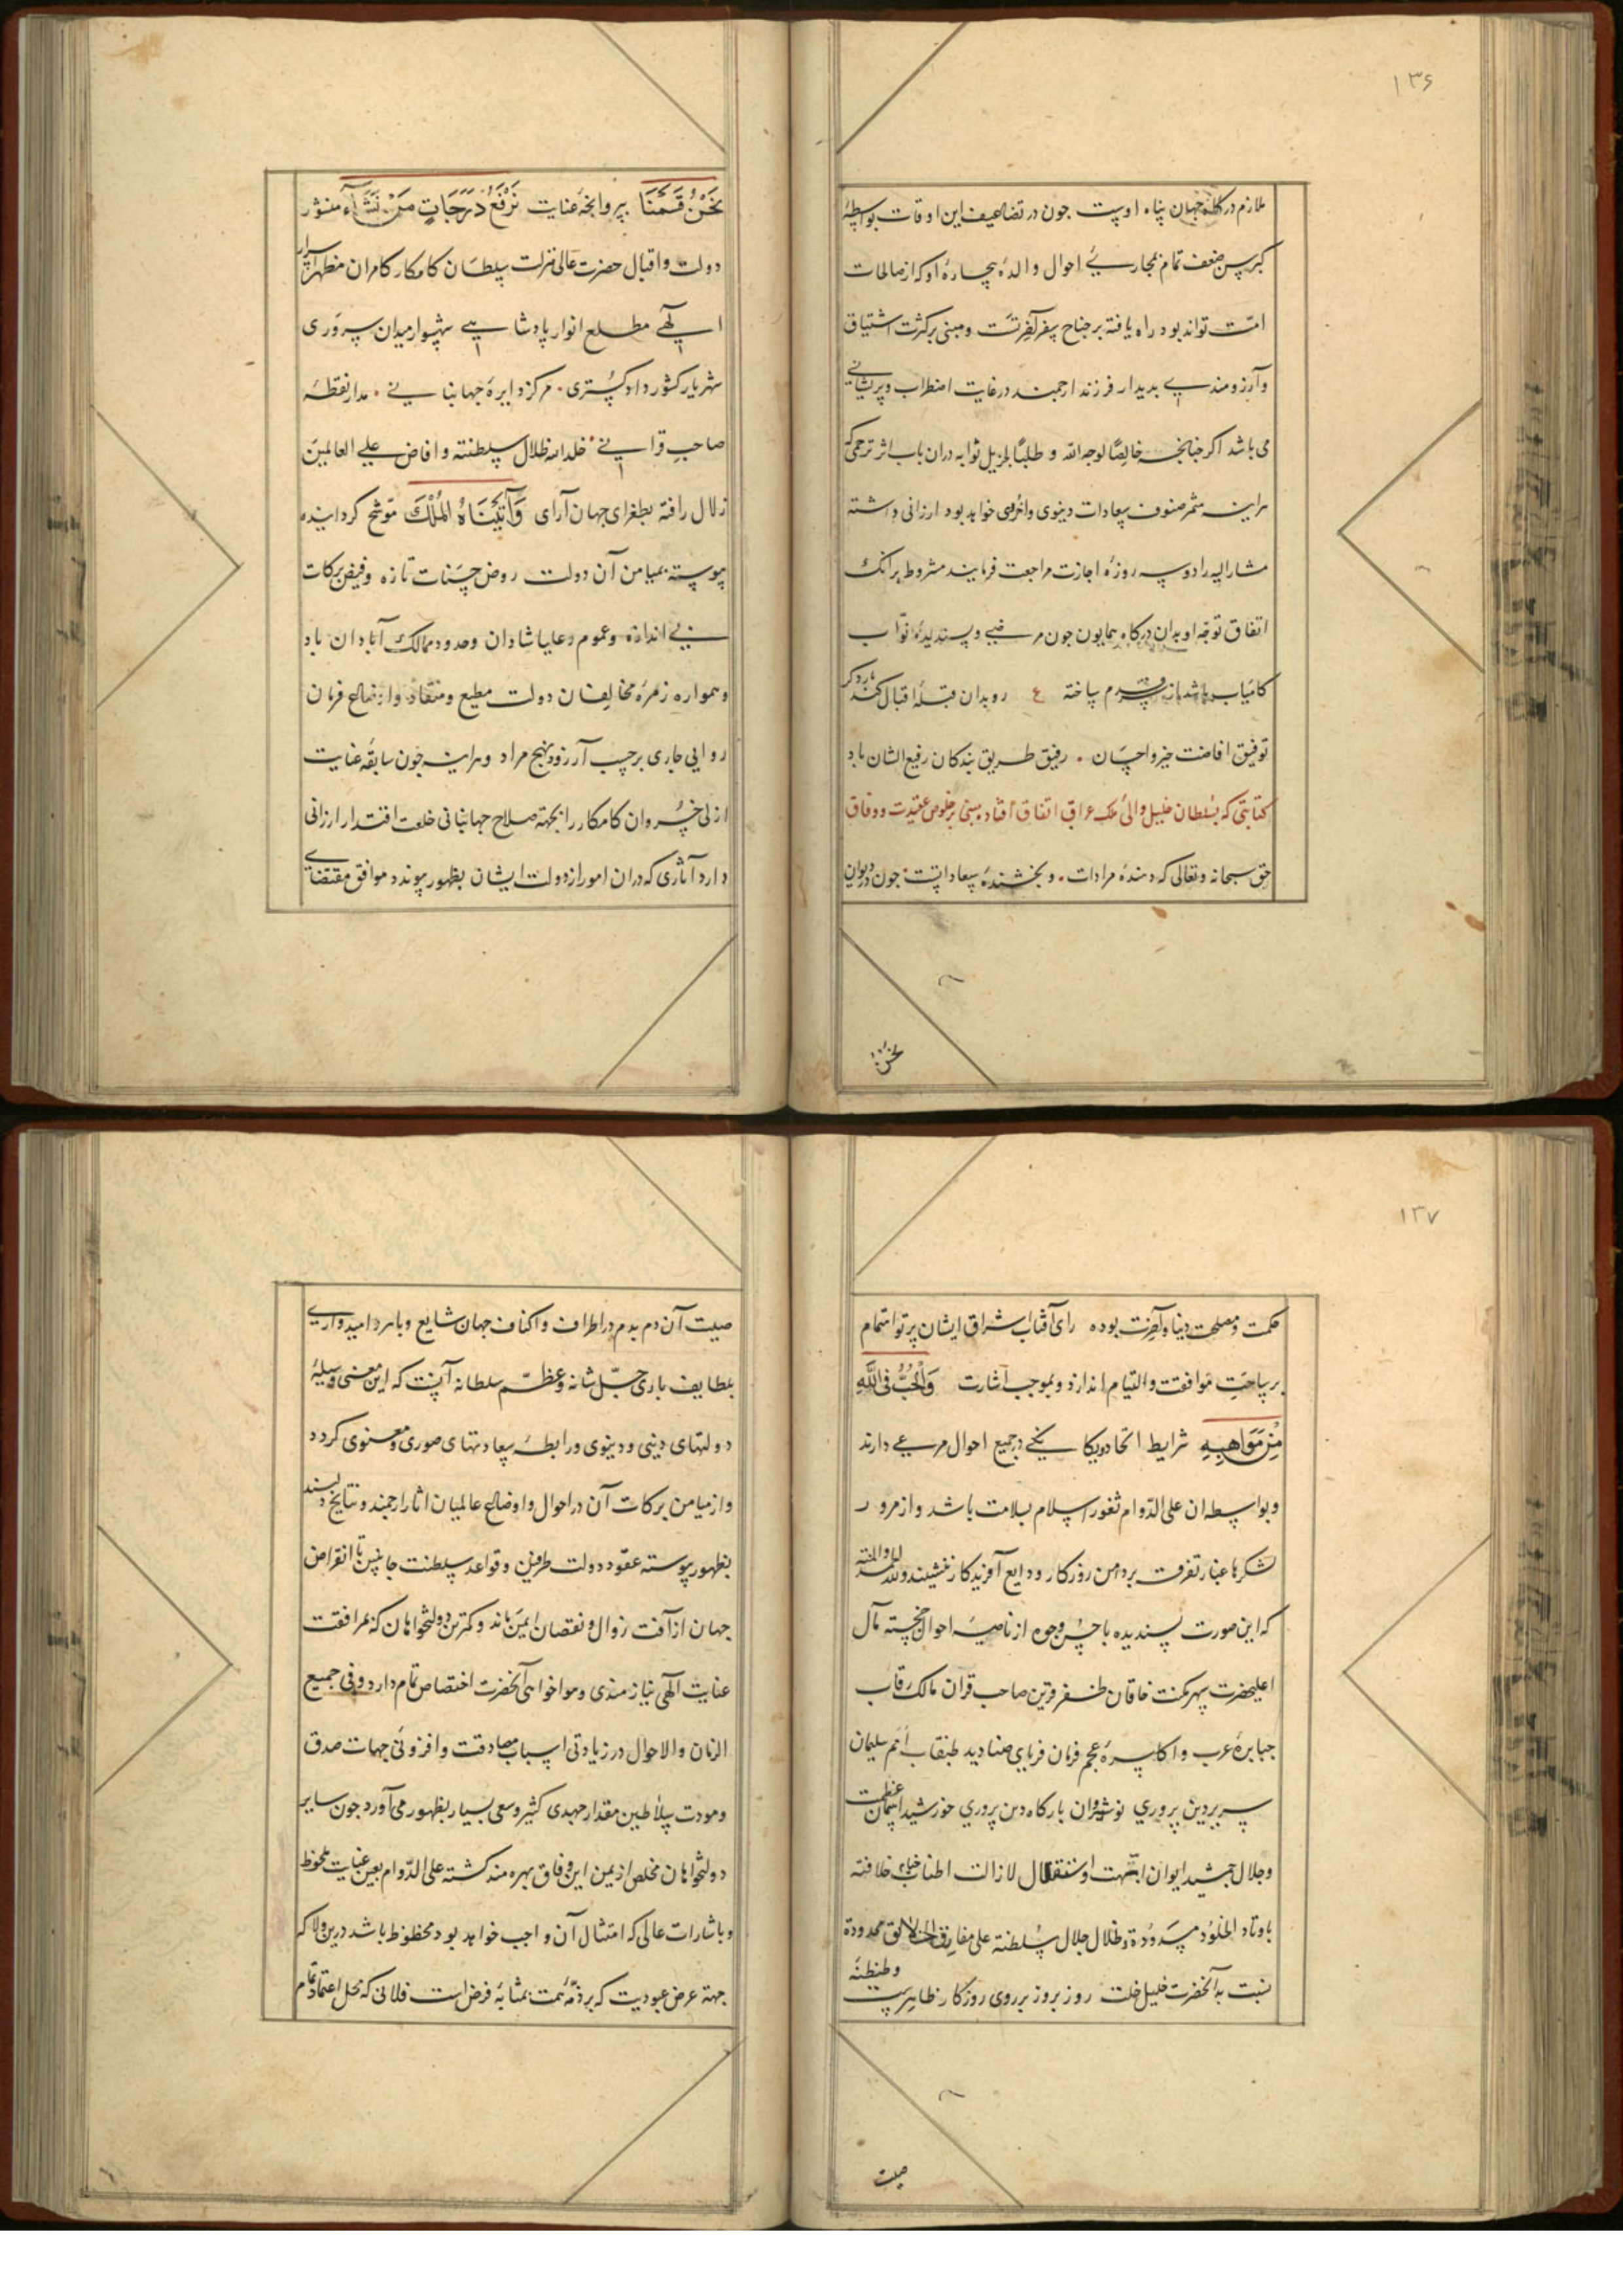 ۱۳۶
ملازم درگاه جهان پناه اوست جون در تضاعیف این اوقات بواسطهٔ
کبر سن ضعف تمام بمجاری احوال والدهٔ بیچارهٔ او که از صالحات
امت تواند بود راه یافته بر جناح سفر آخرتست و مبنی بر کثرت اشتیاق
و آرزومندی بدیدار فرزند ارجمند در غایت اضطراب و پریشانی
می باشد اکر جنانجه خالصًا لوجه الله و طلبًا لجزیل ثوابه دران باب اثر ترحمی که
هراینه مثمر صنوف سعادات دنیوی و اخروی خواهد بود ارزانی داشته
مشارالیه را دو سه روزه اجازت مراجعت فرمایند مشروط برانک
اتفاق توجه او بدان درکاه همایون جون مرضی و پسندیدهٔ نواب
کامیاب باشد از فرق قدم ساخته ع رو بدان قبلهٔ اقبال کند بار دکر
توفیق افاضت خیر و احسان . رفیق طریق بندکان رفیع الشان باد
کتابتی که بسلطان خلیل والی ملک عراق اتفاق افتاد مبنی بر خلوص عقیدت و وفاق
حق سبحانه و تعالی که دهندهٔ مرادات . و بخشندهٔ سعاداتست . جون در دیوان
نحن
نَحْنُ قَسَمْنَا بپروانجهٔ عنایت نَرْفَعُ دَرَجَاتٍ مَنْ نَشَآءُ منشور
دولت و اقبال حضرت عالی منزلت سلطان کامکار کامران مظهر اسرار
الهی مطلع انوار پادشاهی شهسوار میدان سروری
شهریار کشور دادکستری . مرکز دایرهٔ جهانبانی . مدار نقطهٔ
صاحب قرانی . خلد الله ظلال سلطنته و افاض علی العالمین
زلال رافته بطغرای جهان آرای وَآتَيْنَاهُ الْمُلْكَ موشح کردانیده
پیوسته بمیامن آن دولت روض حسنات تازه و فیض برکات
بی اندازه و عموم رعایا شادان و حدود ممالک آبادان باد
و همواره زمرهٔ مخالفان دولت مطیع و منقاد و اوضاع فرمان
روایی جاری بر حسب آرزو و نهج مراد و هراینه جون سابقهٔ عنایت
ازلی خسروان کامکار را بجهة صلاح جهانبانی خلعت اقتدار ارزانی
دارد آثاری که دران امور از دولت ایشان بظهور پیوندد موافق مقتضای
۱۳۷
حکمت و مصلحت دنیا و آخرت بوده رای آفتاب اشراق ایشان پرتو اهتمام
بر ساحت موافقت و التیام اندازد و بموجب اشارت وَالْحُبُّ فِی اللّٰهِ
مِنْ مَوَاهِبِهِ شرایط اتحاد و یکانکی در جمیع احوال مرعی دارند
و بواسطه ان علی الدوام ثغور اسلام بسلامت باشد و از مرور
لشکرها غبار تفرقت بر دامن روزکار ودایع آفریدکار ننشیند و لله الحمد والمنة
که این صورت پسندیده باحسن وجوه از ناصیهٔ احوال خجسته مآل
اعلیحضرت سپهر مکنت خاقان ظفر قرین صاحب قران مالک رقاب
جبابرهٔ عرب و اکاسرهٔ عجم فرمان فرمای صنادید طبقات امم سلیمان
سریر دین پروری نوشیروان بارکاه دین پروری خورشید آسمان عظمت
و جلال جمشید ایوان ابهت و استقلال لازالت اطناب خیام خلافته
باوتاد الخلود مسدودة و ظلال جلال سلطنته علی مفارق الخلایق ممدودة
نسبت به آنحضرت خلیل خلت روز بروز بر روی روزکار ظاهرست و طنطنهٔ
صیت
صیت آن دم بدم در اطراف و اکناف جهان شایع و باهر و امیدواری
بلطایف باری جل شانه و عظم سلطانه آنست که این معنی وسیلهٔ
دولتهای دینی و دنیوی و رابطهٔ سعادتهای صوری و معنوی کردد
و از میامن برکات آن در احوال و اوضاع عالمیان اثار ارجمند و نتایج دلپسند
بظهور پیوسته عقود دولت طرفین و قواعد سلطنت جانبین تا انقراض
جهان از آفت زوال و نقصان ایمن ماند و کمترین دولتخواهان که بمرافقت
عنایت الهی بنیازمندی و هواخواهی آنحضرت اختصاص تمام دارد و فی جمیع
الزمان والاحوال در زیادتی اسباب مصادقت و افزونی جهات صدق
و مودت سلاطین مقدار جهدی کثیر و سعی بسیار بظهور می آورد جون سایر
دولتخواهان مخلص از یمن این وفاق بهره مند کشته علی الدوام بعین عنایت ملحوظ
و باشارات عالی که امتثال آن واجب خواهد بود محظوظ باشد درین ولا که
جهة عرض عبودیت که بر ذمهٔ همت بمثابهٔ فرض است فلانی که محل اعتماد تمام